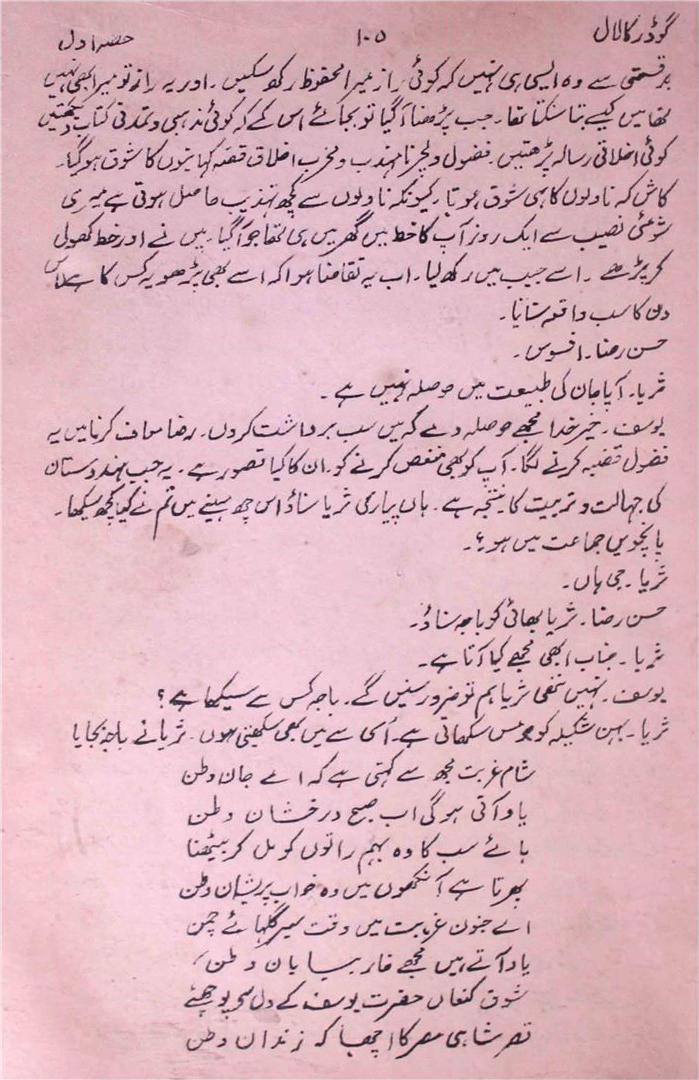 گوڈر کا لال ۱۰۵ حصہ اول
بدقسمتی سے وہ ایسی ہی نہیں کہ کوئی راز میرا محفوظ رکھ سکیں۔ اور یہ راز تو میرا بھی نہیں
تھا میں کیسے بتا سکتا تھا۔ جب پڑھنا آ گیا تو بجائے اس کے کہ کوئی مذہبی و تمدنی کتاب دیکھتیں
کوئی اخلاقی رسالہ پڑھتیں۔ فضول ولچر نا مہذب و مخرب اخلاق قصّہ کہانیوں کا شوق ہو گیا۔
کاش کہ ناولوں کا ہی شوق ہوتا۔ کیونکہ ناولوں سے کچھ تہذیب حاصل ہوتی ہے میری
شومئی نصیب سے ایک روز آپ کا خط میں گھر میں ہی تھا جو آ گیا۔ میں نے اور خط کھول
کر پڑھے۔ اسے جیب میں رکھ لیا۔ اب یہ تقاضا ہوا کہ اسے بھی پڑھو یہ کس کا ہے اس
دن کا سب واقعہ سنایا۔
حسن رضا۔ افسوس۔
ثریا۔ آپا جان کی طبیعت میں حوصلہ نہیں ہے۔
یوسف۔ خیر خدا مجھے حوصلہ دے کہ میں سب برداشت کروں۔ رضا معاف کرنا میں یہ
فضول قضیہ کرنے لگا۔ آپ کو بھی منغص کرنے کو۔ ان کا کیا قصور ہے۔ یہ جب ہندوستان
کی جہالت و تربیت کا نتیجہ ہے۔ ہاں پیاری ثریا سناؤ اس چھ مہینے میں تم نے کیا کچھ سیکھا۔
پانچویں جماعت میں ہو؟۔
ثریا۔ جی ہاں۔
حسن رضا۔ ثریا بھائی کو باجہ سناؤ۔
ثریا۔ جناب ابھی مجھے کیا آتا ہے۔
یوسف۔ نہیں ننھی ثریا ہم تو ضرور سنیں گے۔ باجہ کس سے سیکھا ہے؟
ثریا۔ بہن شکیلہ کو جو مس سکھاتی ہے۔ اُسی سے میں بھی سکھتی ہوں۔ ثریا نے باجہ بجایا
شام غربت مجھ سے کہتی ہے کہ اے جان وطن
یاد آتی ہو گی اب صبح درخشان وطن
ہائے سب کا وہ بہم راتوں کو مل کر بیٹھنا
پھرتا ہے آنکھوں میں وہ خواب پریشان وطن
اے جنون غربت میں وقت سیر گلہائے چمن
یاد آتے ہیں مجھے خار بیابان وطن
شوق کنعاں حضرت یوسف کے دل سے پوچھئے
قصر شاہی مصر کا اچھا کہ زندان وطن